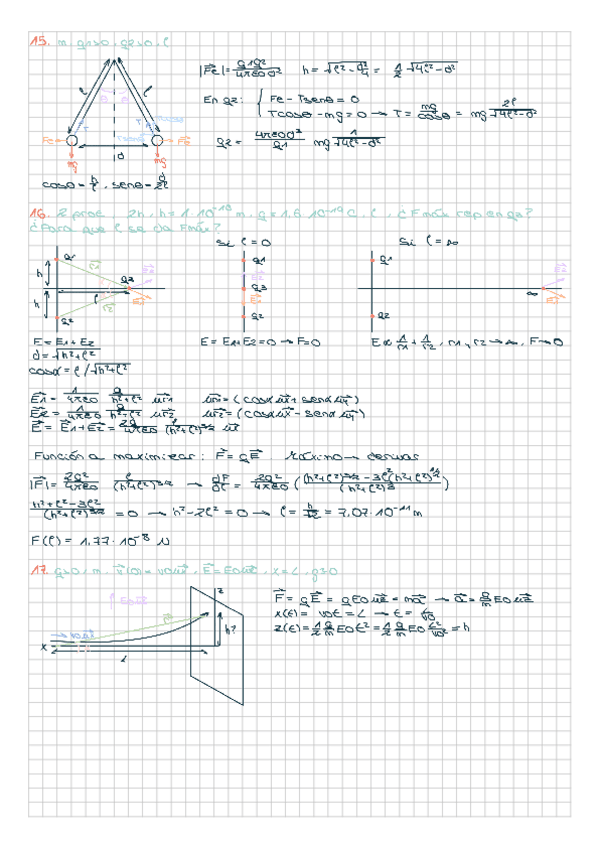 15. m, q1>0, q2>0, ℓ
|Fe| = q1q2/4πε0d² h = √ℓ²-d²/4 = 1/2 √4ℓ²-d²
En q2: { Fe - Tsenθ = 0
Tcosθ - mg = 0 → T = mg/cosθ = mg 2ℓ/√4ℓ²-d²
q2 = 4πε0d²/q1 mg 1/√4ℓ²-d²
ℓ ℓ
θ θ
Tcosθ
T T
Tsenθ
Fe Fe
d
cosθ = h/ℓ, senθ = d/2ℓ
16. 2 prot, 2h, h = 1·10⁻¹⁰ m, q = 1,6·10⁻¹⁹ C, ℓ, ¿F máx rep en q3?
¿Para que ℓ se da Fmáx?
Si ℓ = 0 Si ℓ = ∞
Q1 Q1 Q1
h ℓ Q3 Q3 ∞
h
Q2 Q2 Q2
E = E1+E2 E = E1+E2 = 0 → F=0 E∝ 1/r1 + 1/r2, r1, r2 → ∞, F→0
d = √h²+ℓ²
cosα = ℓ/√h²+ℓ²
E1 = 1/4πε0 q/h²+ℓ² ur1 ur1 = (cosα ux + senα uy)
E2 = 1/4πε0 q/h²+ℓ² ur2 ur2 = (cosα ux - senα uy)
E = E1+E2 = 2q/4πε0 ℓ/(h²+ℓ²)^3/2 ux
Función a maximizar: F = qE. Máximo → derivar
|F| = 2q²/4πε0 ℓ/(h²+ℓ²)^3/2 → dF/dℓ = 2q²/4πε0 ((h²+ℓ²)^3/2 - 3ℓ²(h²+ℓ²)^1/2/(h²+ℓ²)³)
h²+ℓ²-3ℓ²/(h²+ℓ²)^5/2 = 0 → h²-2ℓ² = 0 → ℓ = h/√2 = 7,07·10⁻¹¹ m
F(ℓ) = 1,77·10⁻⁸ N
17. q>0, m, v(0) = v0ux, E = E0uz, x = L, g=0
F = qE = qE0uz = ma → a = q/m E0uz
x(t) = v0t = L → t = L/v0
z(t) = 1/2 q/m E0t² = 1/2 q/m E0 L²/v0² = h
E0uz
z
h?
v0ux
x
L